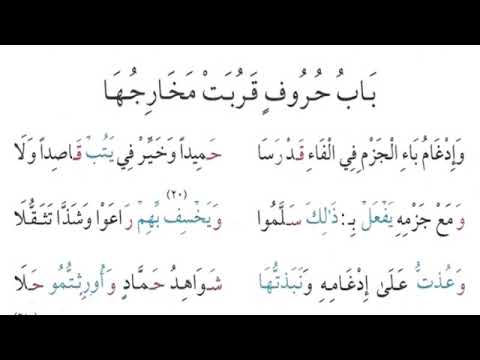 بَابُ حُرُوفٍ قَرُبَتْ مَخَارِجُهَا
وَإِدْغَامُ بَاءِ الْجَزْمِ فِي الْفَاءِ قَدْ رَسَا حَمِيداً وَخَيِّرْ فِي يَتُبْ قَاصِداً وَلَا
وَمَعْ جَزْمِهِ يَفْعَلْ بِـ: ذَلِكَ سَلَّمُوا وَيَخْسِفْ بِّهِمْ رَاعَوْا وَشَذَّا تَثَقُّلَا
(٢٠)
وَعُذتُّ عَلَى إِدْغَامِهِ وَنَبَذتُّهَا شَوَاهِدُ حَمَّادٍ وَأُورِثتُّمُو حَلَا